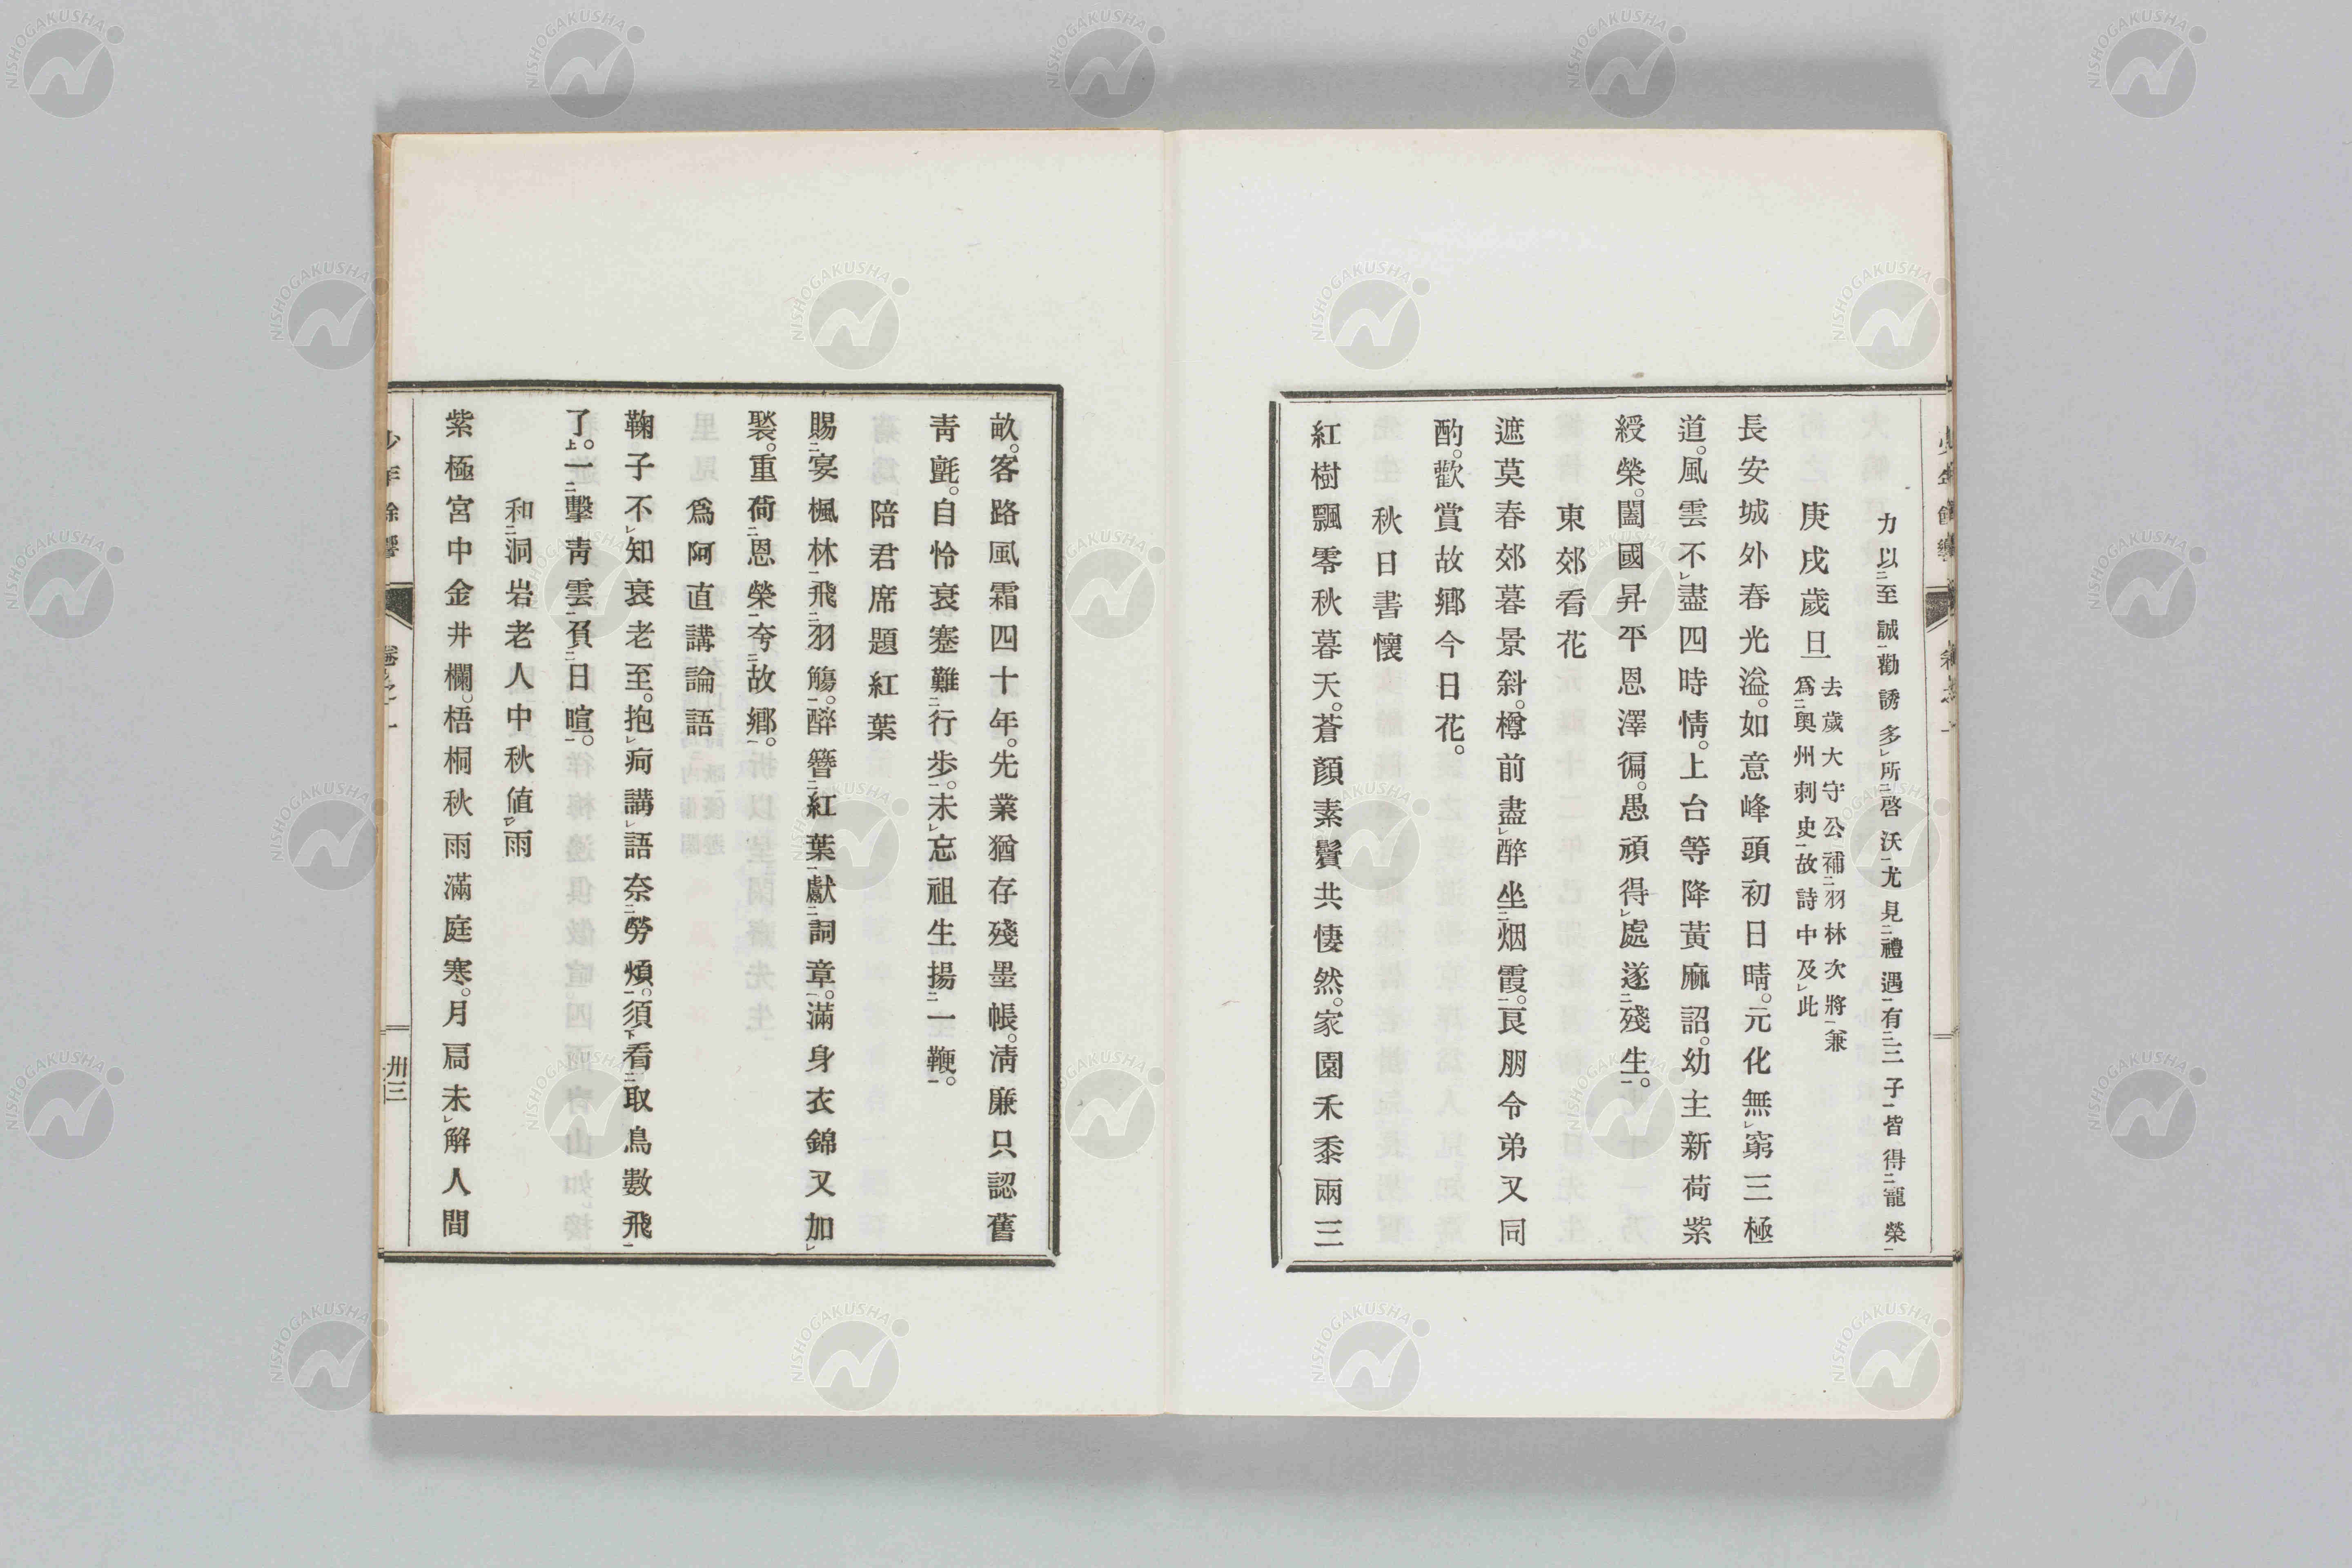 力以至誠勸誘多所啓沃尤見禮遇有三子皆得寵榮
庚戌歲旦
去歲大守公補羽林次將兼
爲奧州刺史故詩中及此
長安城外春光溢。如意峰頭初日晴。元化無窮三極
道。風雲不盡四時情。上台等降黃麻詔。幼主新荷紫
綬榮。闔國昇平恩澤徧。愚頑得處遂殘生。
東郊看花
遮莫春郊暮景斜。樽前盡醉坐烟霞。良朋令弟又同
酌。歡賞故鄕今日花。
秋日書懷
紅樹飄零秋暮天。蒼顏素鬢共悽然。家園禾黍兩三
畝。客路風霜四十年。先業猶存殘墨帳。淸廉只認舊
靑氈。自怜衰蹇難行步。未忘祖生揚一鞭。
陪君席題紅葉
賜宴楓林飛羽觴。醉簪紅葉獻詞章。滿身衣錦又加
褧。重荷恩榮夸故鄕。
爲阿直講論語
鞠子不知衰老至。抱痾講語奈勞煩。須看取鳥數飛
了。一擊靑雲負日暄。
和洞岩老人中秋値雨
紫極宮中金井欄。梧桐秋雨滿庭寒。月扃未解人間
卷之一
卅三